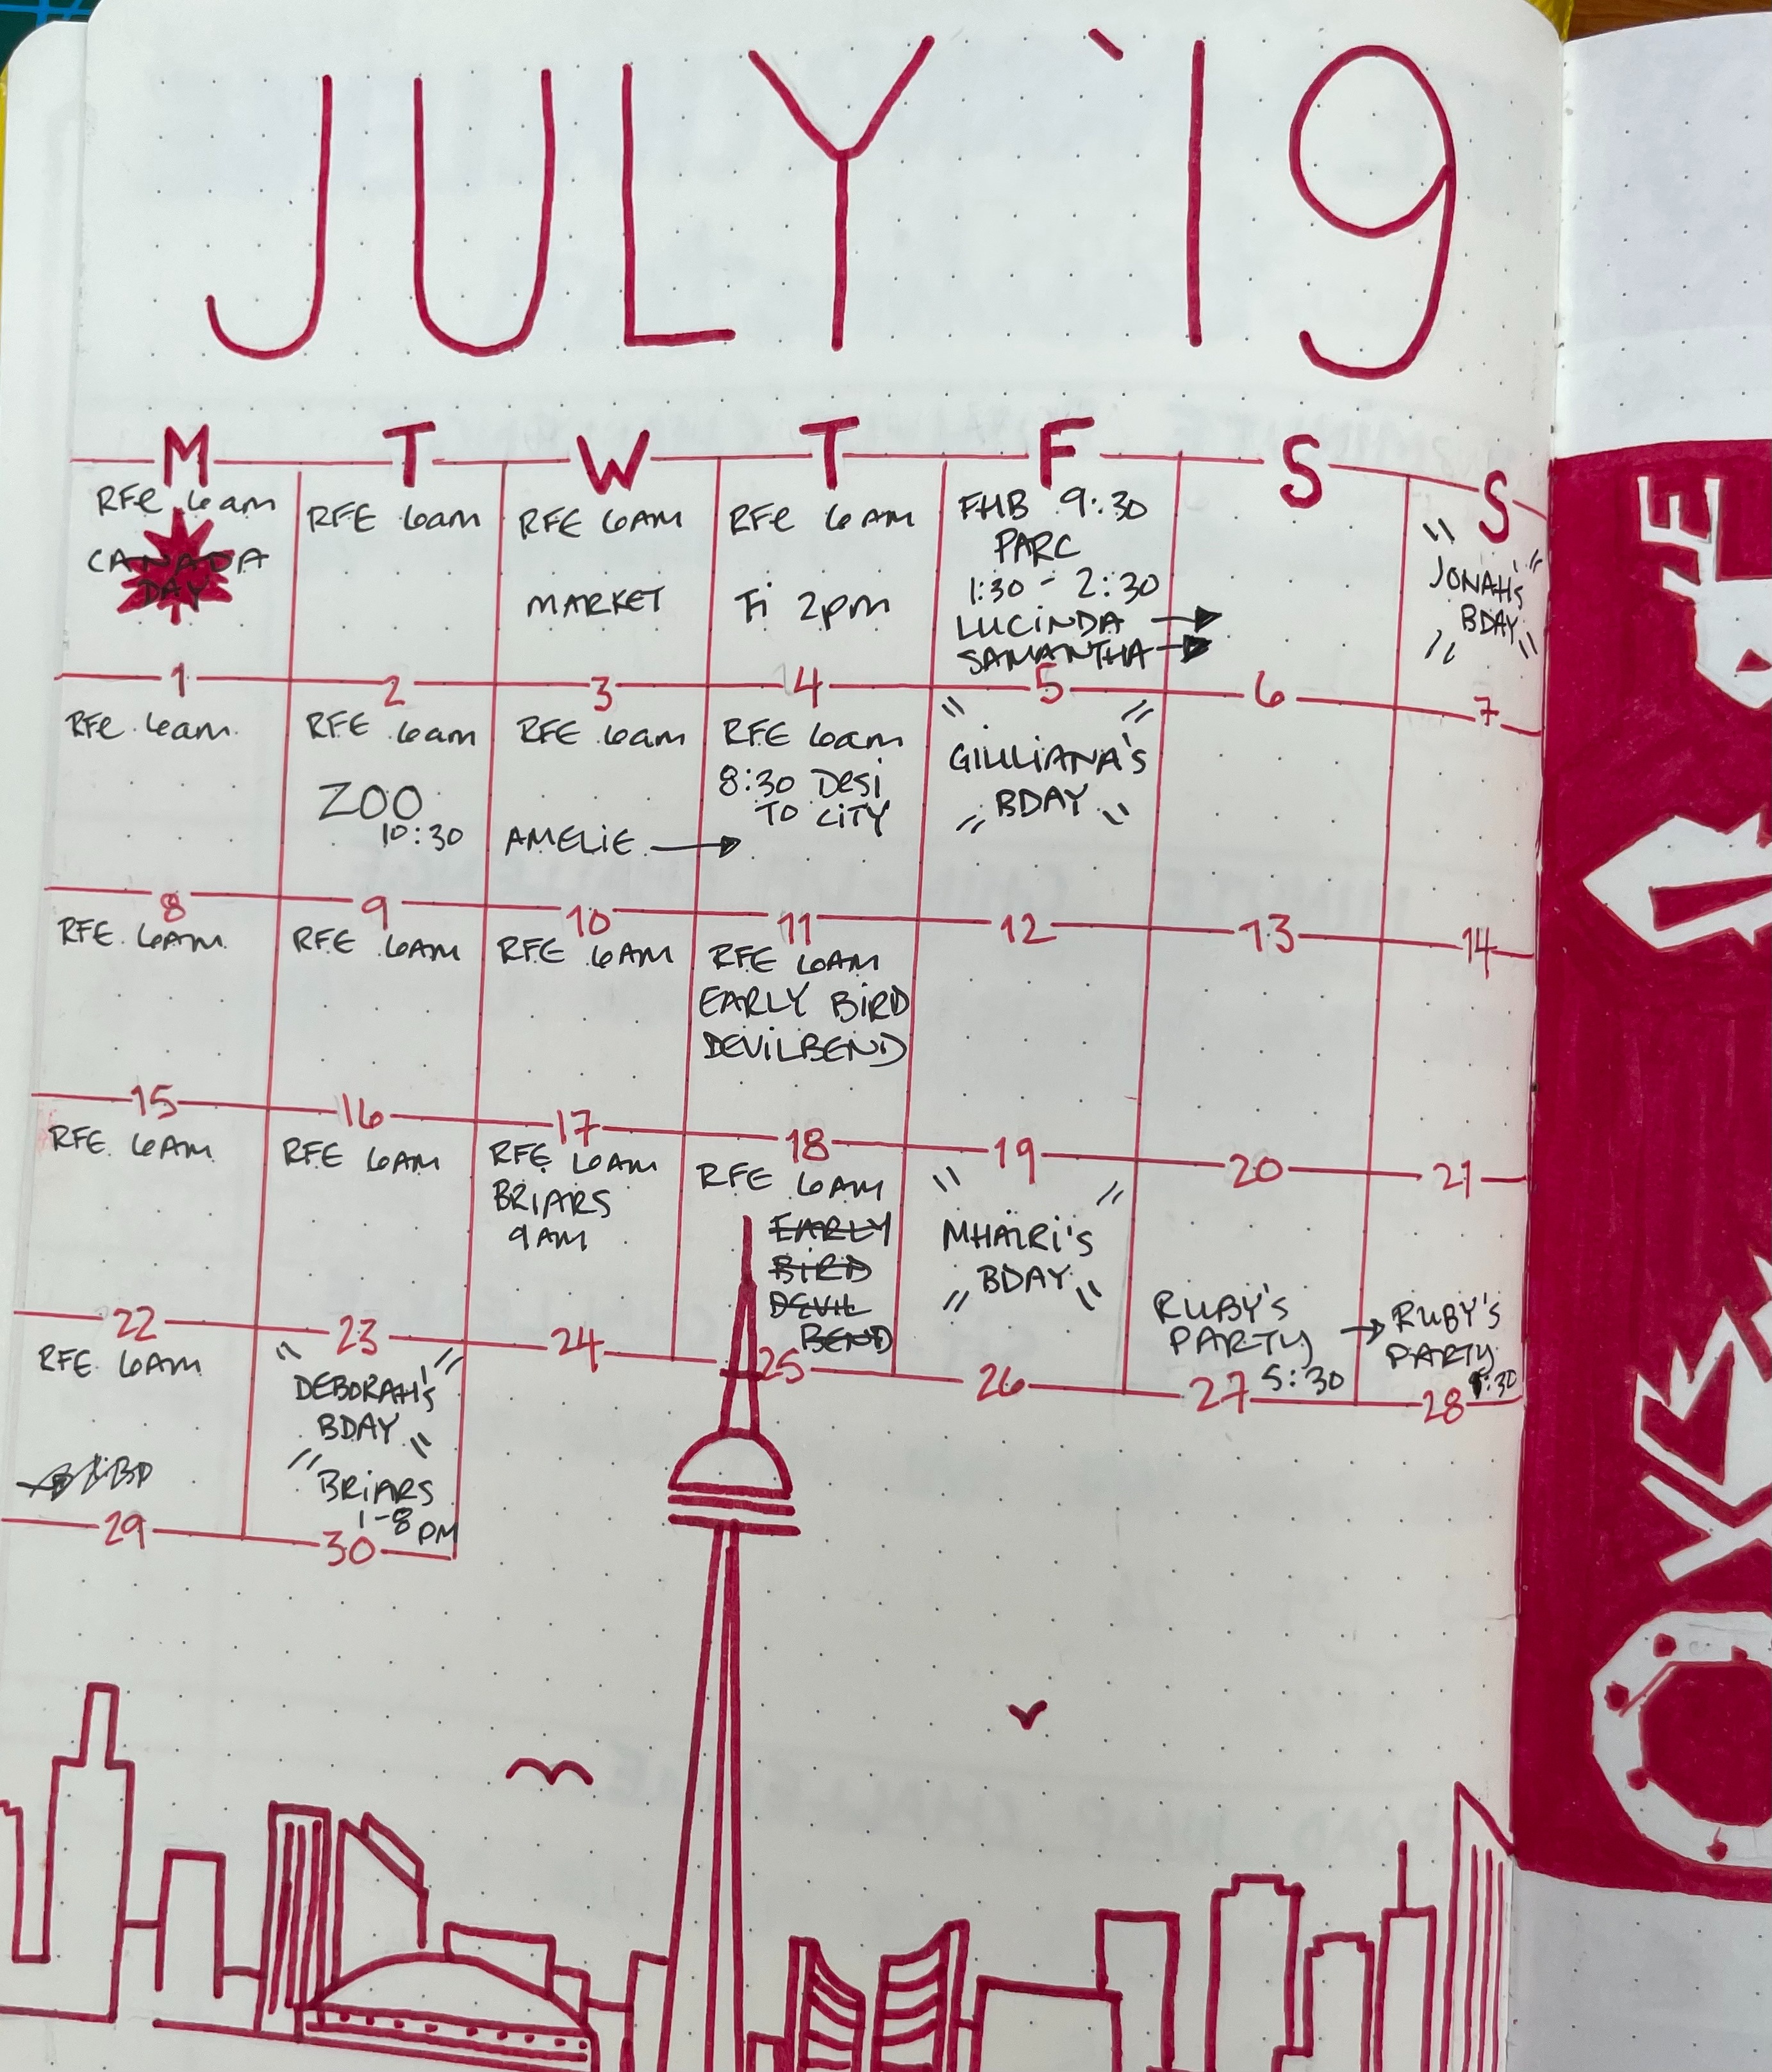 JULY '19
M T W T F S S
RFE 6am
CANADA
DAY
1
RFE 6am
2
RFE 6AM
MARKET
3
RFE 6AM
Fi 2pm
4
FHB 9:30
PARC
1:30 - 2:30
LUCINDA →
SAMANTHA →
5
6
JONAH'S
BDAY
7
RFE 6am
8
RFE 6am
ZOO
10:30
9
RFE 6am
AMELIE →
10
RFE 6am
8:30 DESI
TO CITY
11
GIULIANA'S
BDAY
12
13
14
RFE 6AM
15
RFE 6AM
16
RFE 6AM
17
RFE 6AM
EARLY BIRD
DEVILBEND
18
19
20
21
RFE 6AM
22
RFE 6AM
23
RFE 6AM
BRIARS
9AM
24
RFE 6AM
EARLY
BIRD
DEVIL
BEND
25
MHAIRI'S
BDAY
26
RUBY'S
PARTY
5:30
27
→ RUBY'S
PARTY
:30
28
RFE 6AM
29
DEBORAH'S
BDAY
BRIARS
1-8 PM
30